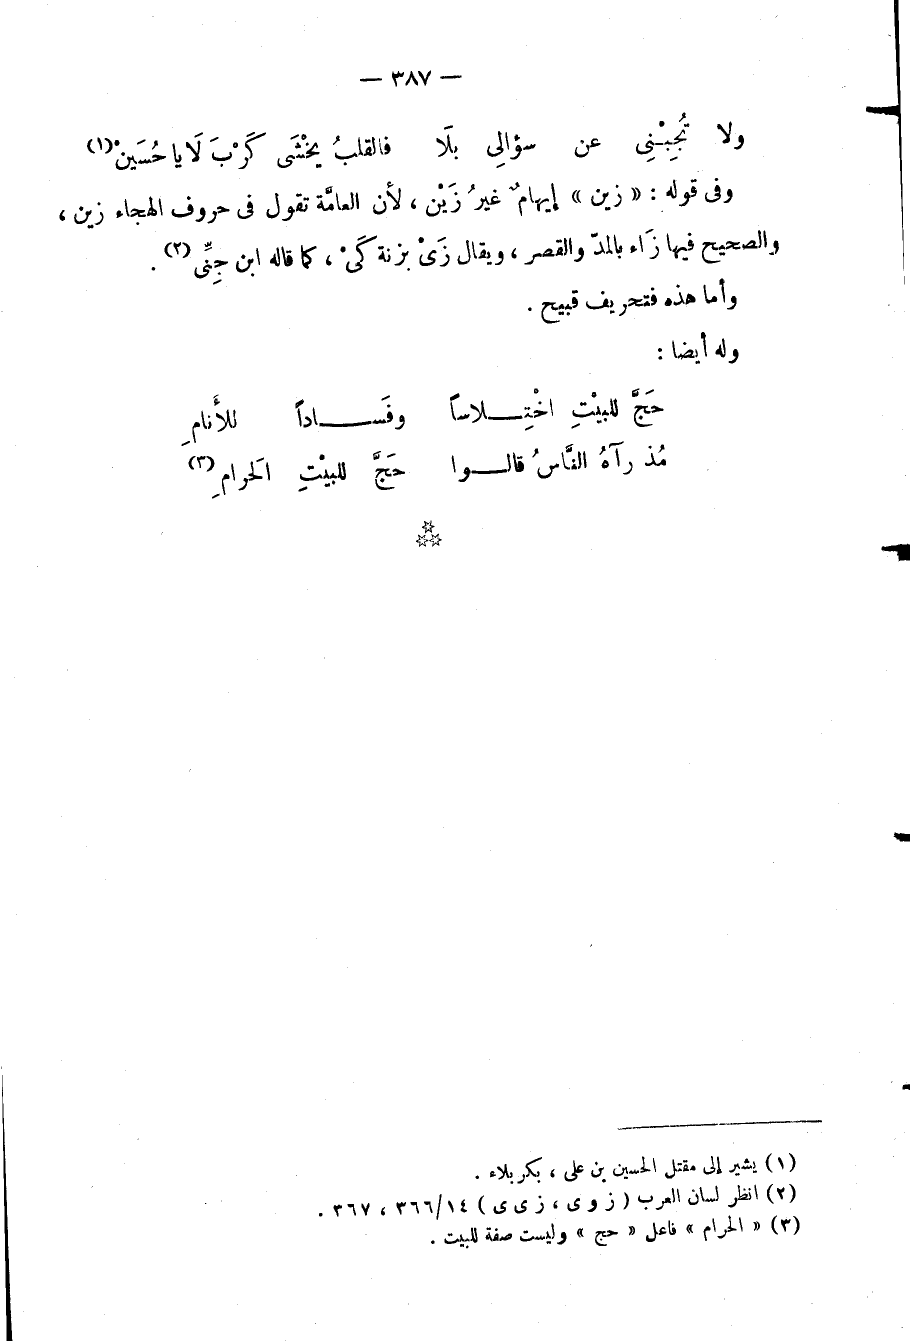 — ٣٨٧ —
ولا تُجِبْنِى عن سؤالِى بلَا فالقلبُ يخْشَى كَرْبَ لَا يا حُسَينْ(١)
وفى قوله : « زين » إيهامٌ غيرُ زَيْن ، لأن العامَّة تقول فى حروف الهجاء زين ،
والصحيح فيها زَاء بالمدّ والقصر ، ويقال زَىْ بزنة كَىْ ، كما قاله ابن جِنِّى (٢) .
وأما هذه فتحريف قبيح .
وله أيضا :
حَجَّ للبيْتِ اخْتِـــلاساً وفَســـاداً للأَنامِ
مُذ رآهُ النَّاسُ قالـــوا حَجَّ للبيْتِ الحَرامِ (٣)
(١) يشير إلى مقتل الحسين بن على ، بكربلاء .
(٢) انظر لسان العرب ( ز و ى ، ز ى ى ) ١٤/٣٦٦ ، ٣٦٧ .
(٣) « الحرام » فاعل « حج » وليست صفة للبيت .